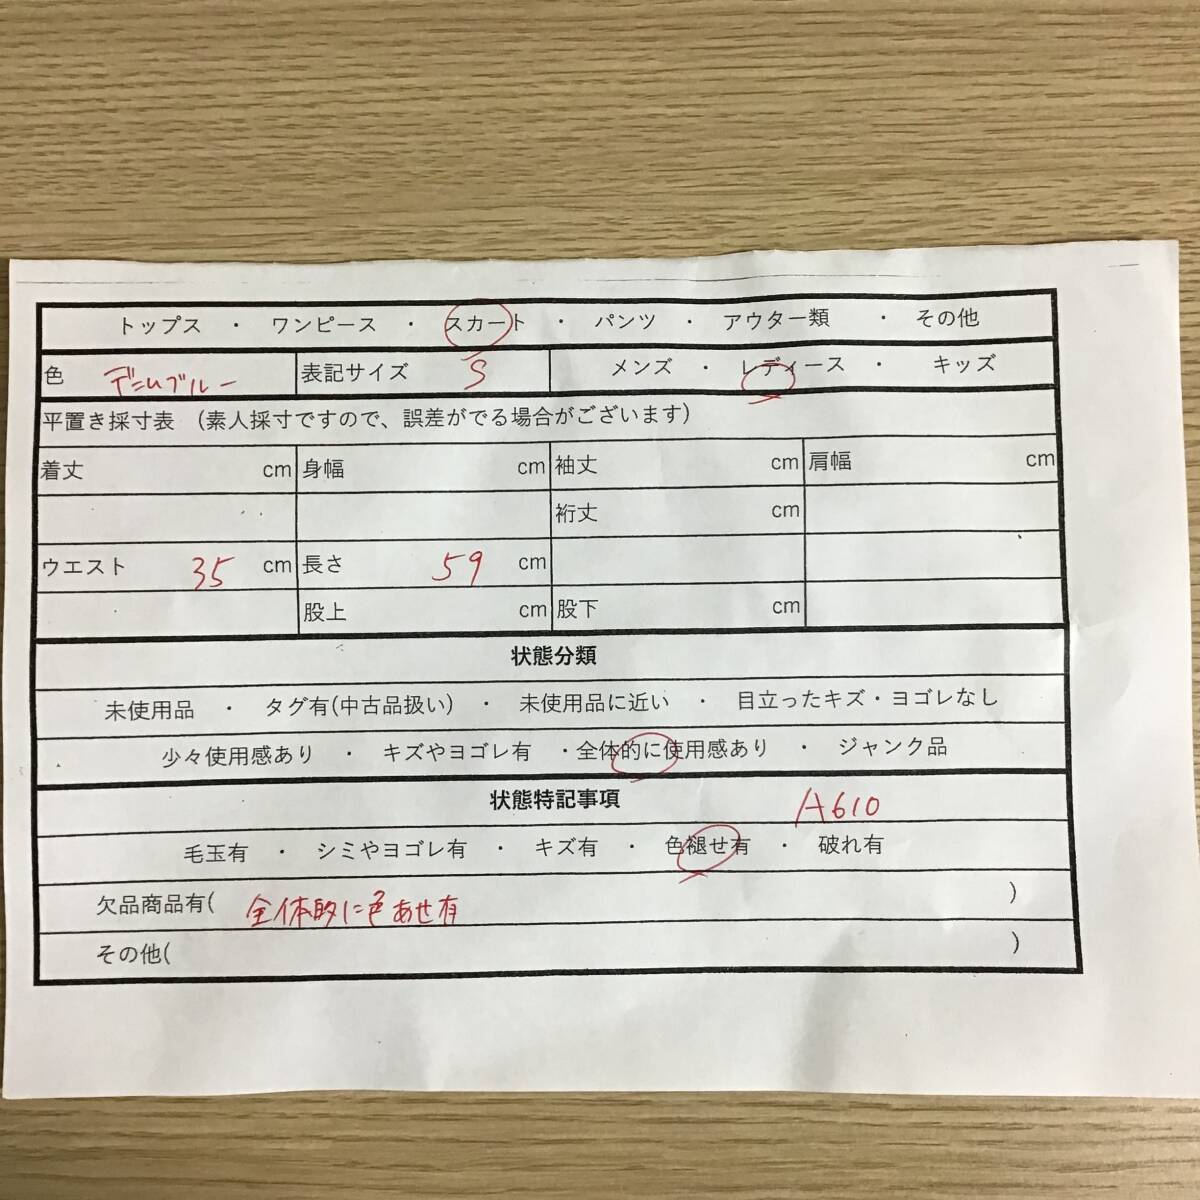 トップス ・ ワンピース ・ スカート ・ パンツ ・ アウター類 ・ その他
色 デニムブルー 表記サイズ S メンズ ・ レディース ・ キッズ
平置き採寸表 (素人採寸ですので、誤差がでる場合がございます)
着丈 cm 身幅 cm 袖丈 cm 肩幅 cm
裄丈 cm
ウエスト 35 cm 長さ 59 cm
股上 cm 股下 cm
状態分類
未使用品 ・ タグ有(中古品扱い) ・ 未使用品に近い ・ 目立ったキズ・ヨゴレなし
少々使用感あり ・ キズやヨゴレ有 ・全体的に使用感あり ・ ジャンク品
状態特記事項 A610
毛玉有 ・ シミやヨゴレ有 ・ キズ有 ・ 色褪せ有 ・ 破れ有
欠品商品有( 全体的に色あせ有 )
その他( )